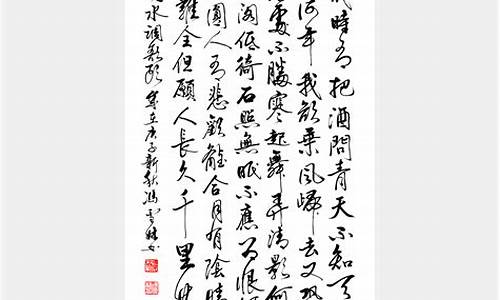 幾時有把酒問青天不知天
何年我欲乘風歸去又恐
處不勝寒起舞弄清影何
閣低綺户照無眠不應有恨何
圓人有悲歡離合月有陰晴
難全但願人長久千里共
水調歌頭 歲在庚子新秋馮雪